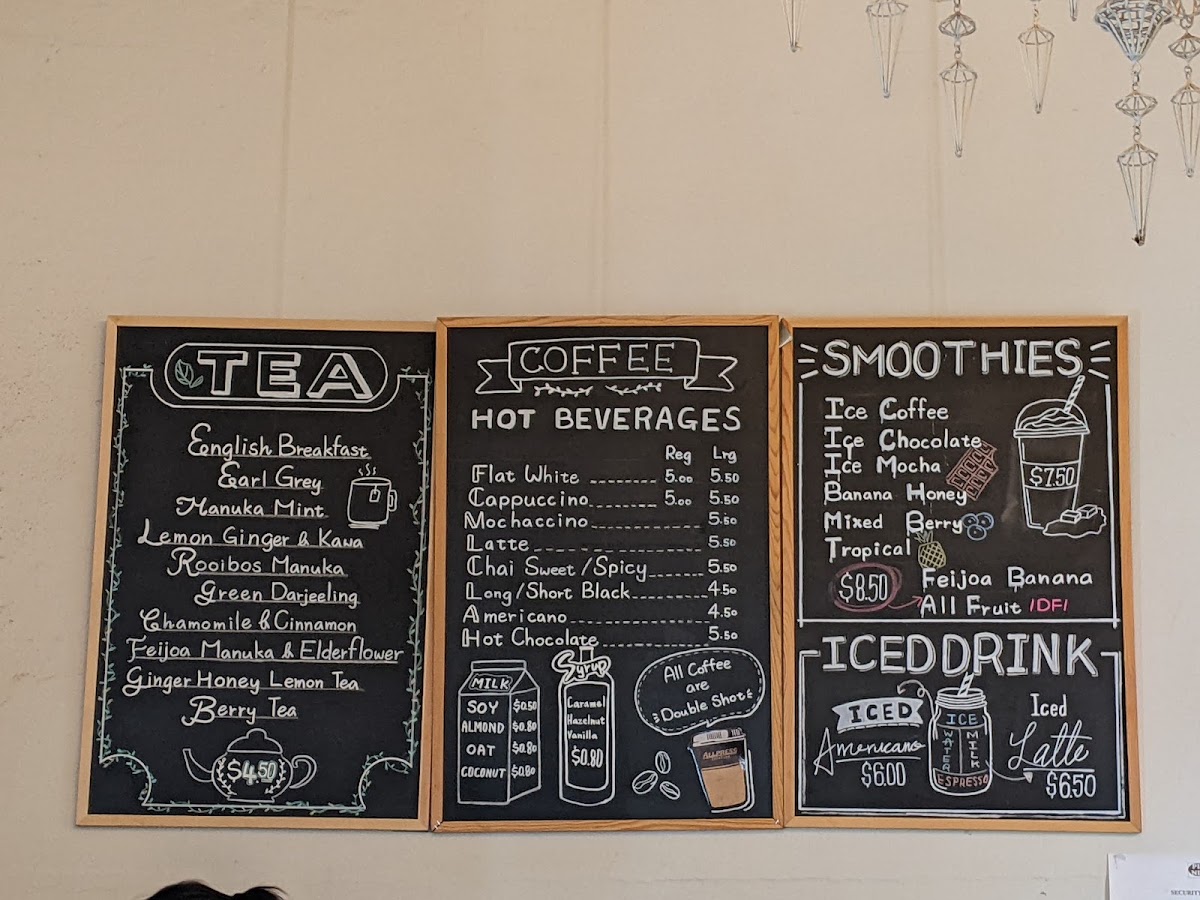 TEA
English Breakfast
Earl Grey
Manuka Mint
Lemon Ginger & Kawa
Rooibos Manuka
Green Darjeeling
Chamomile & Cinnamon
Feijoa Manuka & Elderflower
Ginger Honey Lemon Tea
Berry Tea
$4.50
COFFEE
HOT BEVERAGES
Reg Lrg
Flat White 5.00 5.50
Cappuccino 5.00 5.50
Mochaccino 5.50
Latte 5.50
Chai Sweet / Spicy 5.50
Long / Short Black 4.50
Americano 4.50
Hot Chocolate 5.50
MILK
SOY $0.50
ALMOND $0.80
OAT $0.80
COCONUT $0.80
Syrup
Caramel
Hazelnut
Vanilla
$0.80
All Coffee
are
Double Shot
ALLPRESS
SMOOTHIES
Ice Coffee
Ice Chocolate
Ice Mocha
Banana Honey
Mixed Berry
Tropical
$7.50
$8.50
Feijoa Banana
All Fruit /DF/
ICED DRINK
ICED
Americano
$6.00
ICE
WATER
MILK
ESPRESSO
Iced
Latte
$6.50
SECURITY